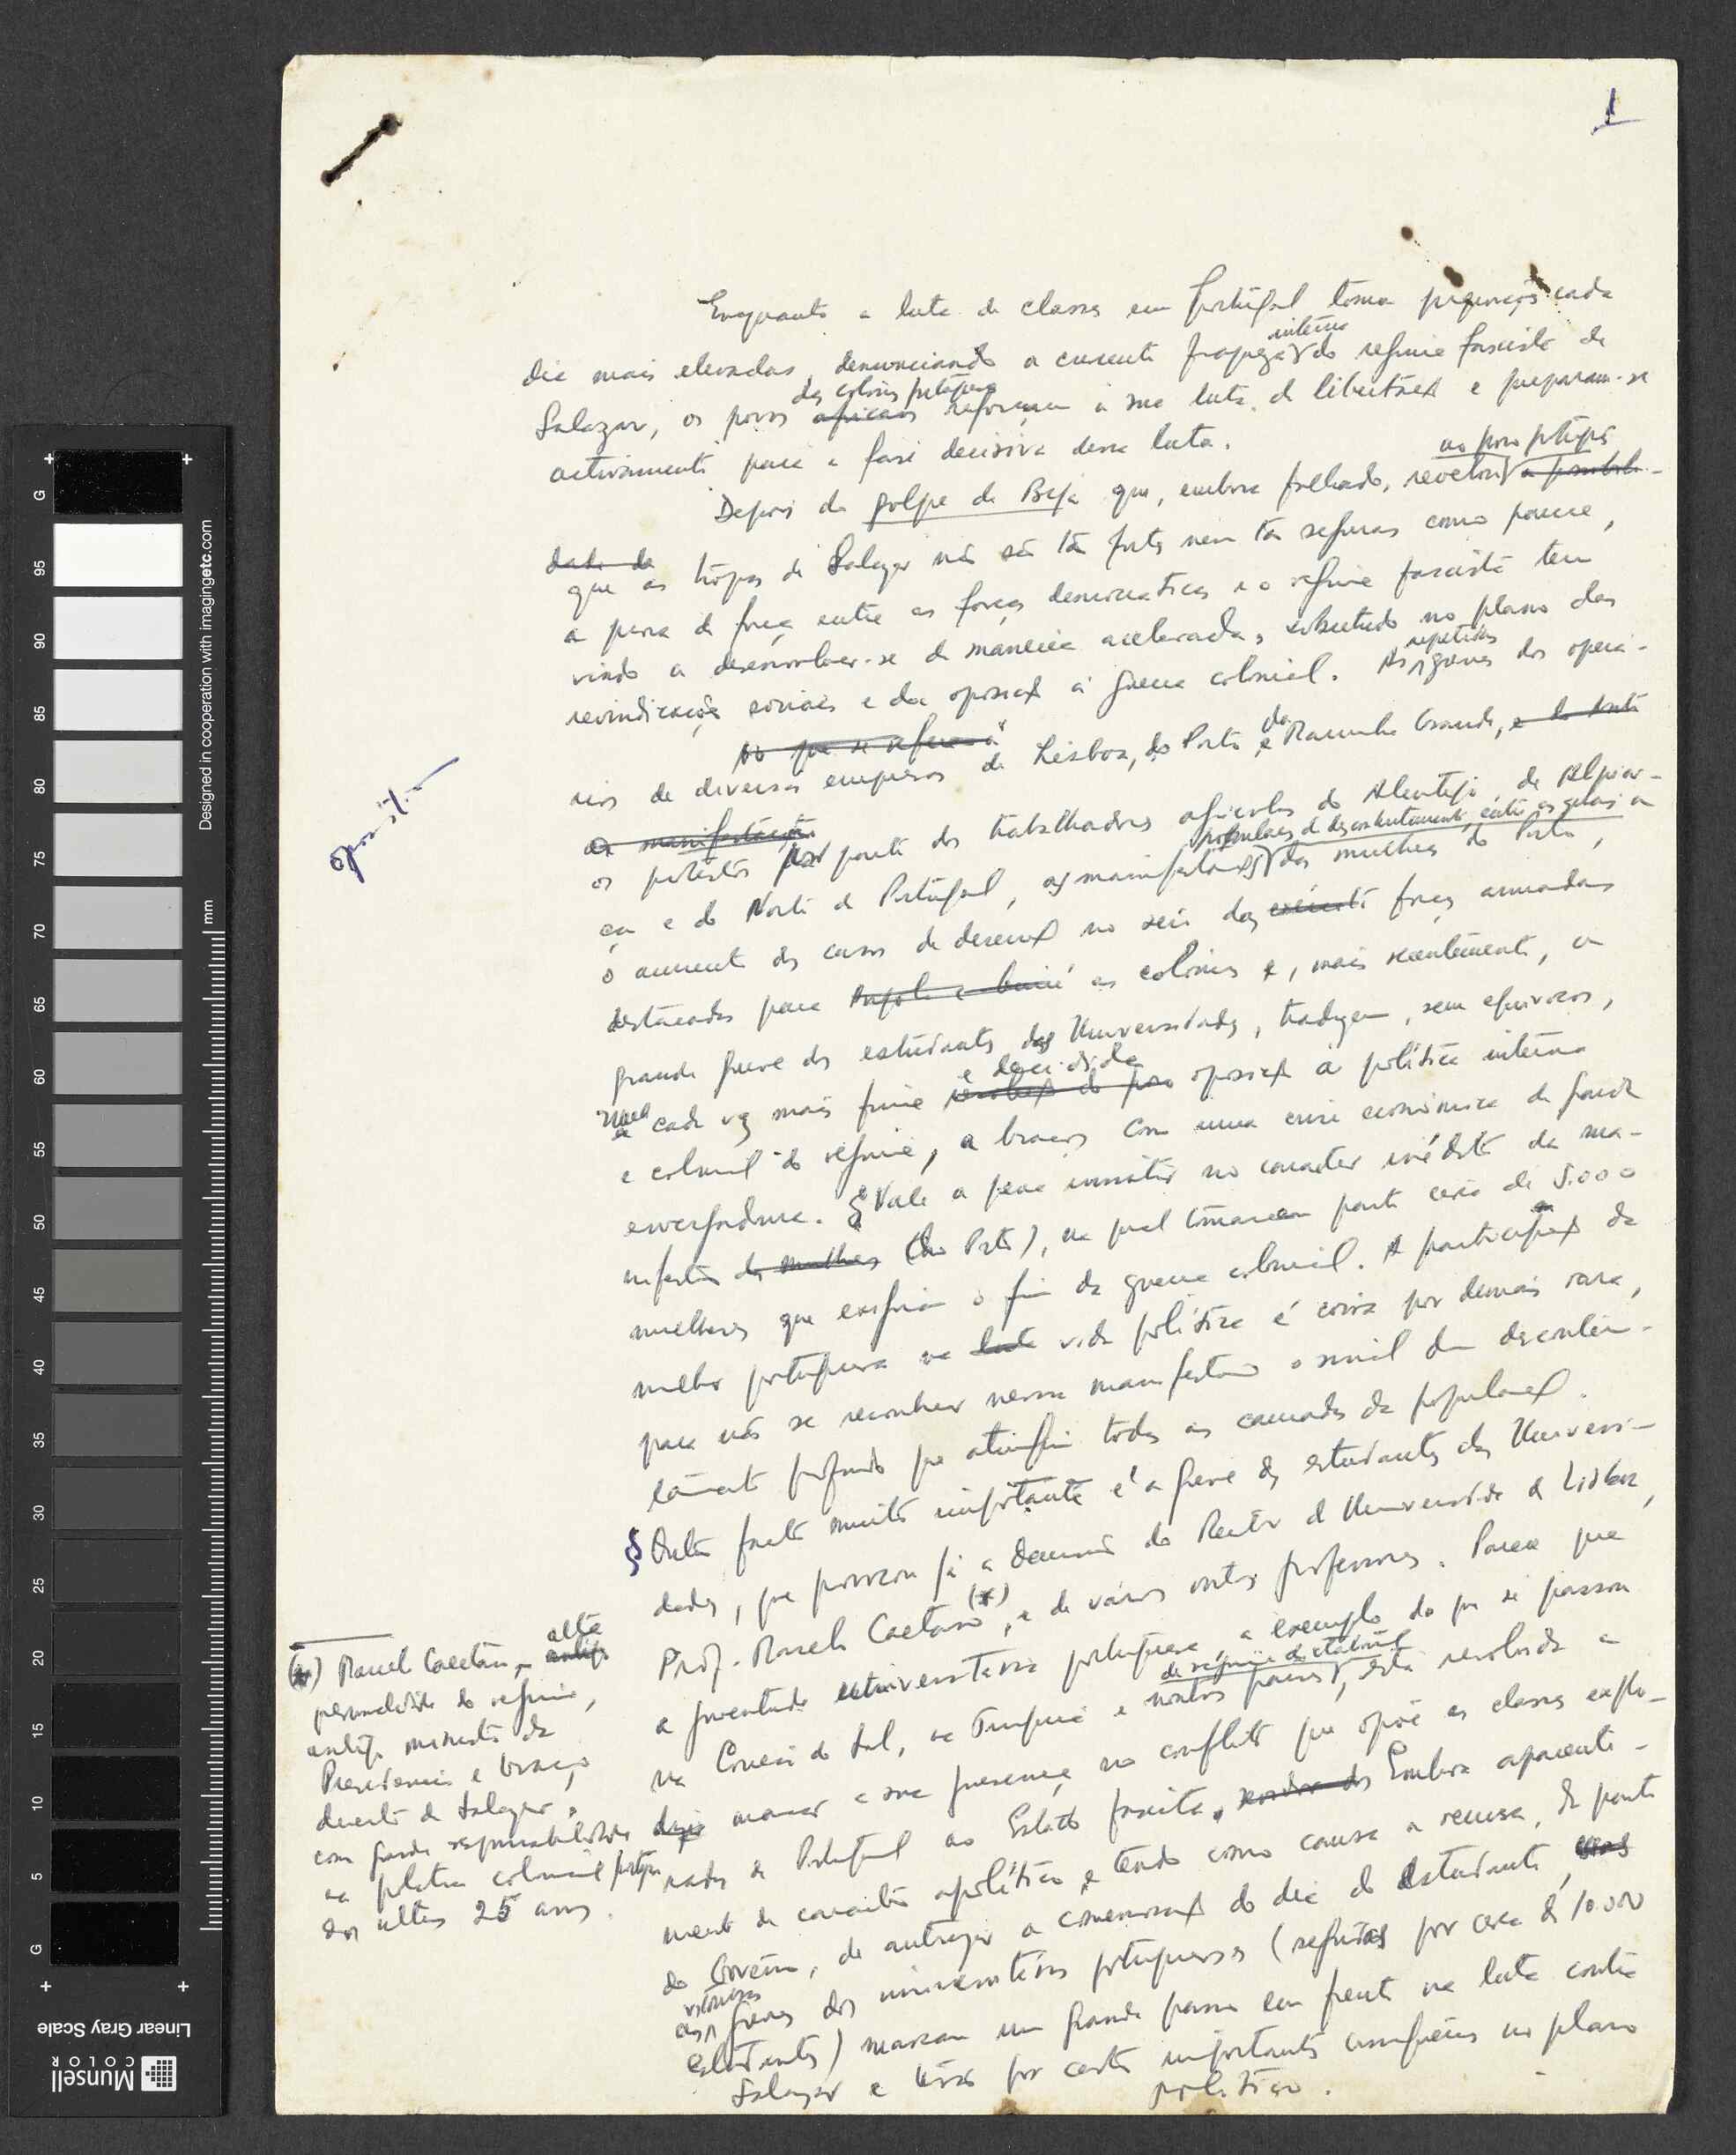 1
Enquanto a luta de classes em Portugal toma proporções cada
dia mais elevadas, denunciando a crescente fraqueza interna do regime fascista de
Salazar, os povos africanos das colónias portuguesas reforçam a sua luta de libertação e preparam-se
activamente para a fase decisiva dessa luta.
Depois do golpe de Beja que, embora falhado, revelou ao povo português a possibili-
dade de
que as tropas de Salazar não são tão fortes nem tão seguras como parece,
a prova de força entre as forças democráticas e o regime fascista tem
vindo a desenvolver-se de maneira acelerada, sobretudo no plano das
reivindicações sociais e da oposição à guerra colonial. As repetidas greves dos operá-
No que se refere à
rios de diversas empresas de Lisboa, do Porto e da Marinha Grande,
as manifestações
os protestos por parte dos trabalhadores agrícolas do Alentejo, de Alpiar-
ça e do Norte de Portugal, as manifestações populares de descontentamento, entre as quais a das mulheres do Porto,
o aumento dos casos de deserção no seio das exército forças armadas
destacadas para Angola e Guiné as colónias e, mais recentemente, a
grande greve dos estudantes das Universidades, traduzem, sem equívocos,
uma cada vez mais firme e decidida oposição à política interna
e colonial do regime, a braços com uma crise económica de grande
envergadura. § Vale a pena insistir no caracter inédito da ma-
nifestação das mulheres (do Porto), na qual tomaram parte cerca de 5.000
mulheres que exigiam o fim da guerra colonial. A participação da
mulher portuguesa na luta vida política é coisa por demais rara,
para não se reconhecer nessa manifestação o sinal dum desconten-
tamento profundo que atingiu todas as camadas da população.
§ Outro facto muito importante é a greve dos estudantes das Universi-
dades, que provocou já a demissão do Reitor da Universidade de Lisboa,
Prof. Marcelo Caetano (*), e de vários outros professores. Parece que
a juventude universitária portuguesa, a exemplo do que se passou
na Coreia do Sul, na Turquia e noutros países de regime ditatorial, está resolvida a
marcar a sua presença no conflito que opõe as classes explo-
radas de Portugal ao Estado fascista. Embora aparente-
mente de caracter apolítico e tendo como causa a recusa, da parte
do Govêrno, de autorizar a comemoração do dia do Estudante,
as vitoriosas greves dos universitários portugueses (seguidas por cerca de 10.000
estudantes) marcam um grande passo em frente na luta contra
Salazar e terão por certo importantes consequências no plano
político.
(*) Marcelo Caetano, antigo alta
personalidade do regime,
antigo ministro da
Presidencia e braço
direito de Salazar,
com grande responsabilidade
na política colonial portuguesa
dos ultimos 25 anos.